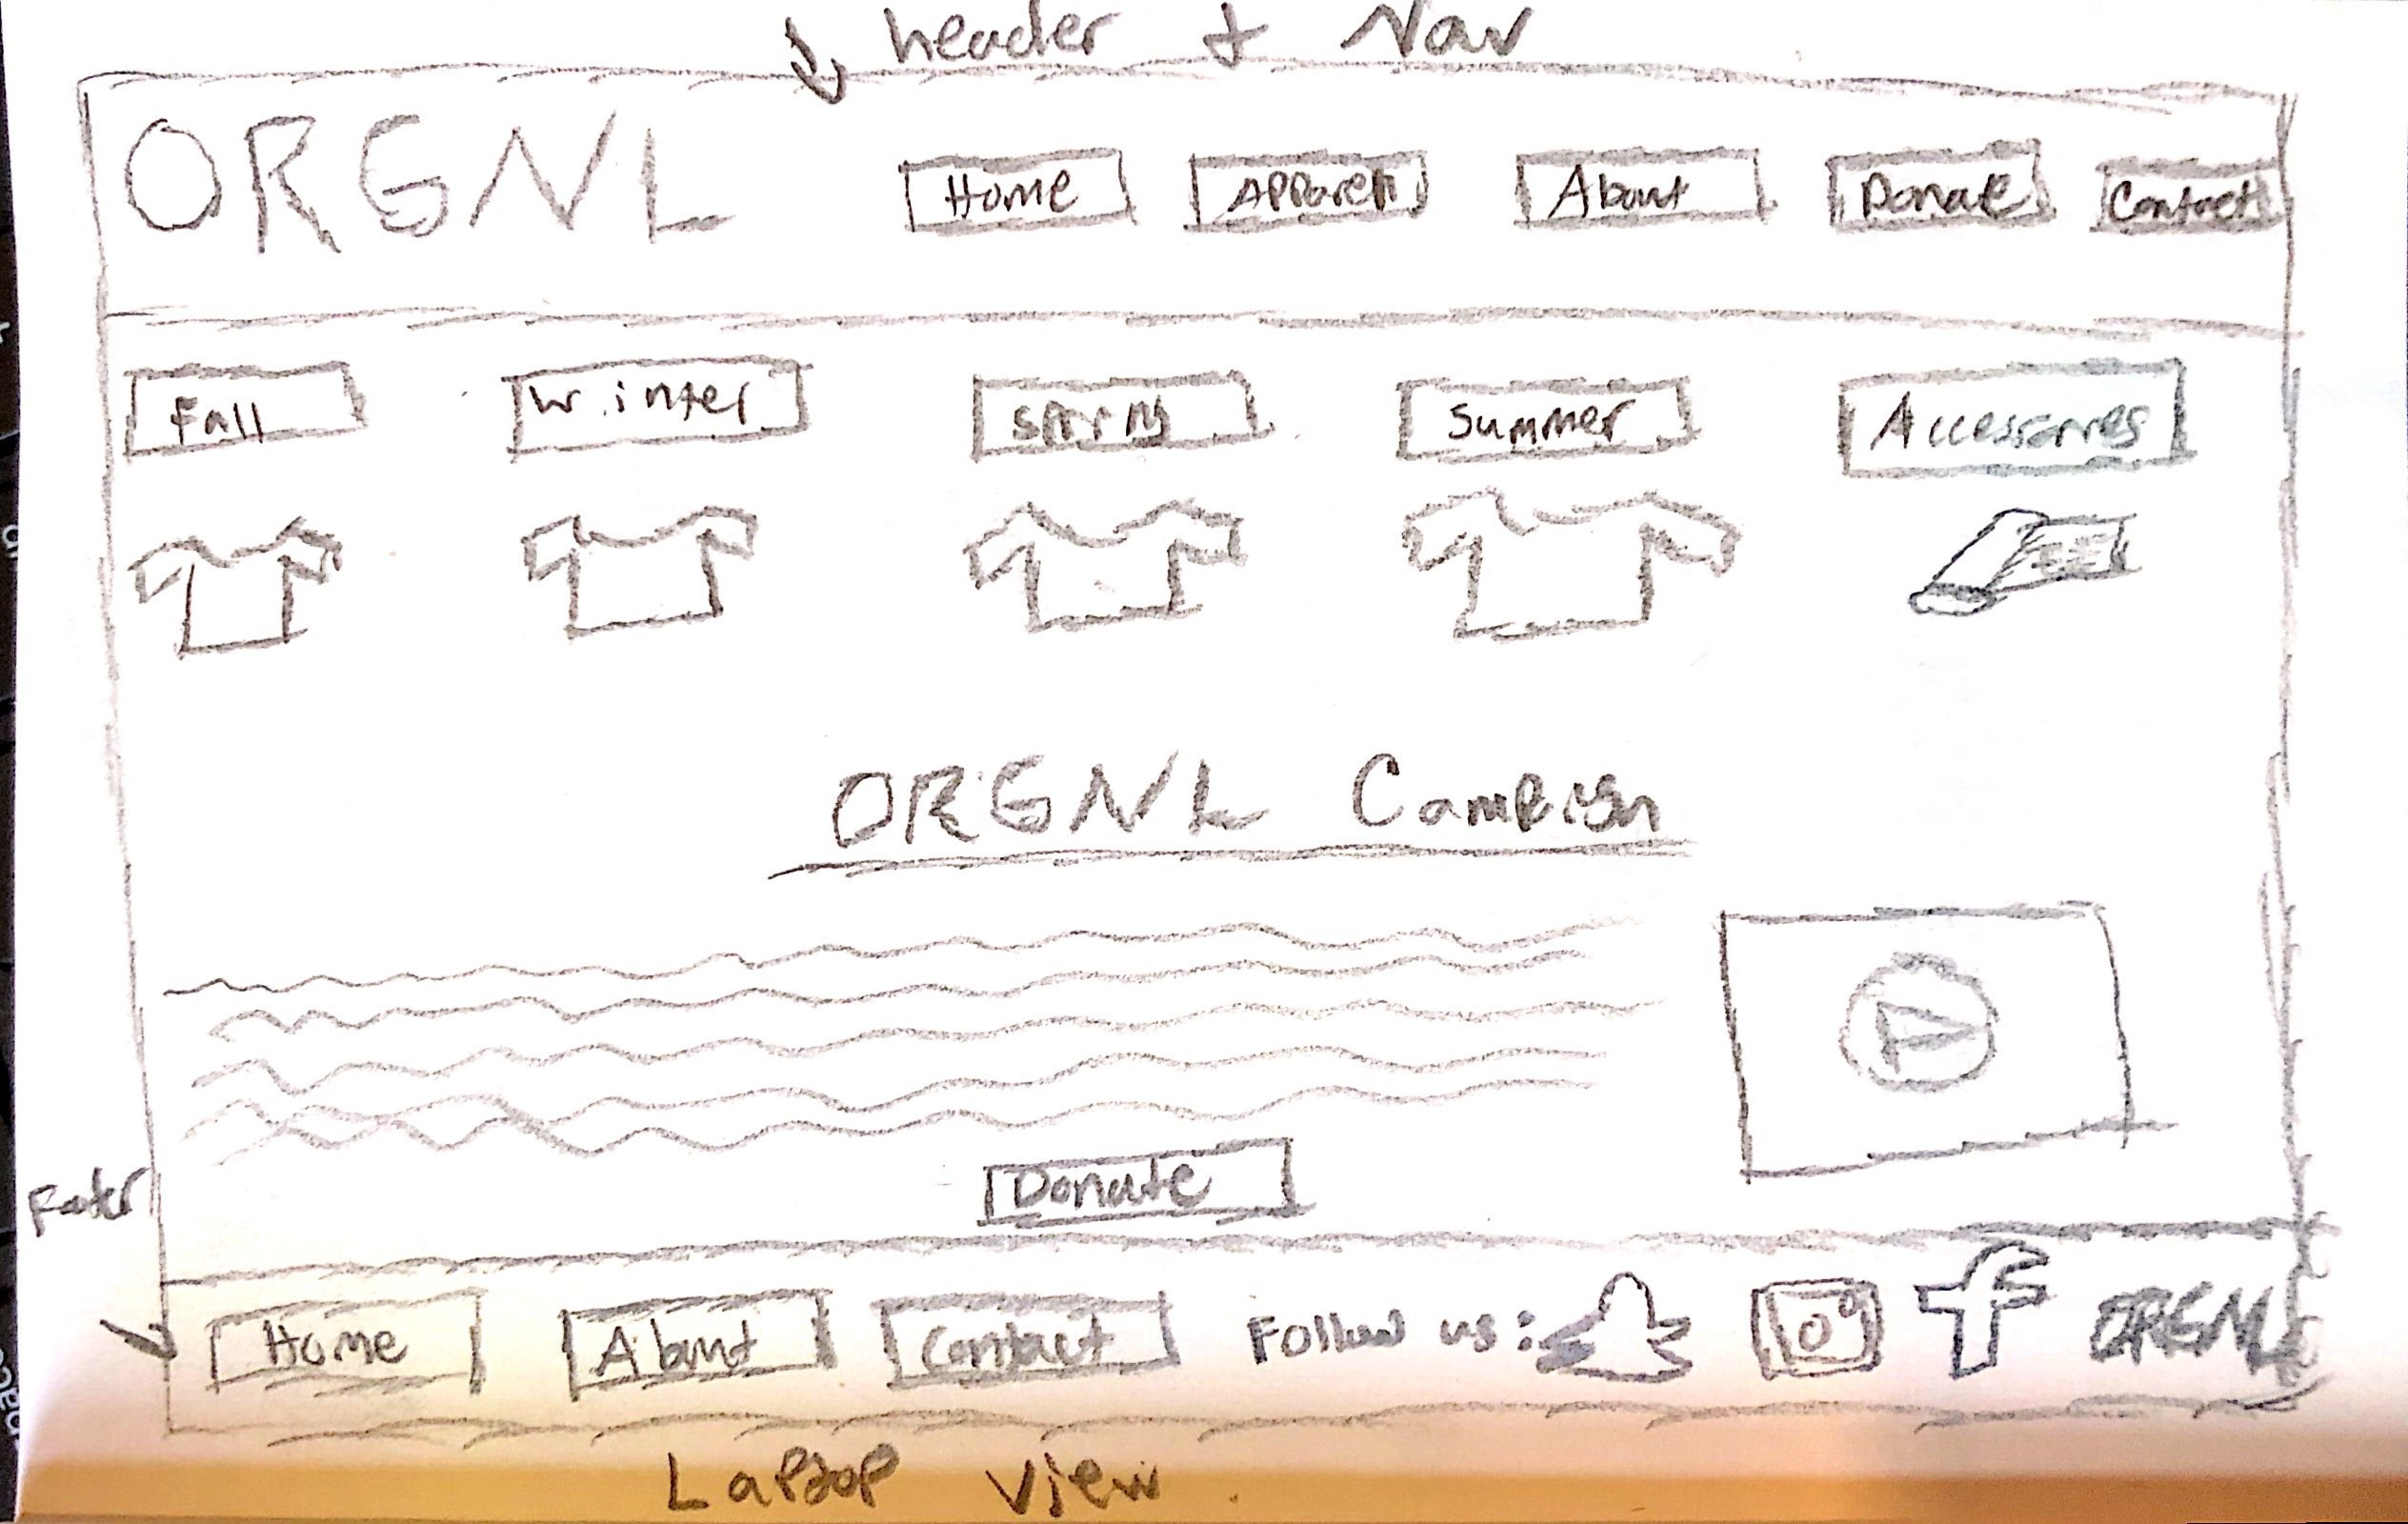 header + Nav
ORGNL Home Apparel About Donate Contact
Fall Winter Spring Summer Accessories
ORGNL Campign
Donate
Footer
Home About Contact Follow us: ORGNL
Laptop View